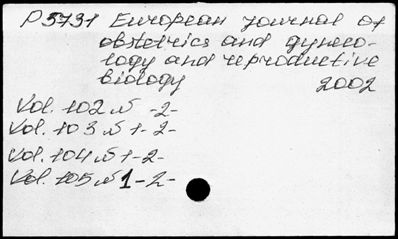 P5731 European journal of
obstetrics and gyneco-
logy and reproductive
biology 2002
Vol. 102 № -2-
Vol. 103 № 1-2-
Vol. 104 № 1-2-
Vol. 105 № 1-2-